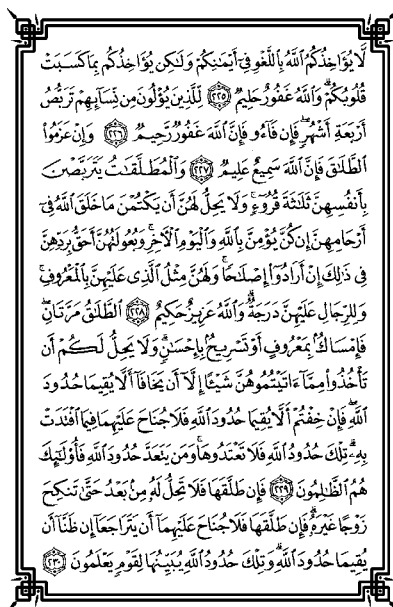 لَّا يُؤَاخِذُكُمُ ٱللَّهُ بِٱللَّغْوِ فِىٓ أَيْمَٰنِكُمْ وَلَٰكِن يُؤَاخِذُكُم بِمَا كَسَبَتْ
قُلُوبُكُمْ ۗ وَٱللَّهُ غَفُورٌ حَلِيمٌ ﴿٢٢٥﴾ لِّلَّذِينَ يُؤْلُونَ مِن نِّسَآئِهِمْ تَرَبُّصُ
أَرْبَعَةِ أَشْهُرٍ ۖ فَإِن فَآءُو فَإِنَّ ٱللَّهَ غَفُورٌ رَّحِيمٌ ﴿٢٢٦﴾ وَإِنْ عَزَمُوا۟
ٱلطَّلَٰقَ فَإِنَّ ٱللَّهَ سَمِيعٌ عَلِيمٌ ﴿٢٢٧﴾ وَٱلْمُطَلَّقَٰتُ يَتَرَبَّصْنَ
بِأَنفُسِهِنَّ ثَلَٰثَةَ قُرُوٓءٍ ۚ وَلَا يَحِلُّ لَهُنَّ أَن يَكْتُمْنَ مَا خَلَقَ ٱللَّهُ فِىٓ
أَرْحَامِهِنَّ إِن كُنَّ يُؤْمِنَّ بِٱللَّهِ وَٱلْيَوْمِ ٱلْءَاخِرِ ۚ وَبُعُولَتُهُنَّ أَحَقُّ بِرَدِّهِنَّ
فِى ذَٰلِكَ إِنْ أَرَادُوٓا۟ إِصْلَٰحًا ۚ وَلَهُنَّ مِثْلُ ٱلَّذِى عَلَيْهِنَّ بِٱلْمَعْرُوفِ ۚ
وَلِلرِّجَالِ عَلَيْهِنَّ دَرَجَةٌ ۗ وَٱللَّهُ عَزِيزٌ حَكِيمٌ ﴿٢٢٨﴾ ٱلطَّلَٰقُ مَرَّتَانِ ۖ
فَإِمْسَاكٌۢ بِمَعْرُوفٍ أَوْ تَسْرِيحٌۢ بِإِحْسَٰنٍ ۗ وَلَا يَحِلُّ لَكُمْ أَن
تَأْخُذُوا۟ مِمَّآ ءَاتَيْتُمُوهُنَّ شَيْـًٔا إِلَّآ أَن يَخَافَآ أَلَّا يُقِيمَا حُدُودَ
ٱللَّهِ ۖ فَإِنْ خِفْتُمْ أَلَّا يُقِيمَا حُدُودَ ٱللَّهِ فَلَا جُنَاحَ عَلَيْهِمَا فِيمَا ٱفْتَدَتْ
بِهِۦ ۗ تِلْكَ حُدُودُ ٱللَّهِ فَلَا تَعْتَدُوهَا ۚ وَمَن يَتَعَدَّ حُدُودَ ٱللَّهِ فَأُو۟لَٰٓئِكَ
هُمُ ٱلظَّٰلِمُونَ ﴿٢٢٩﴾ فَإِن طَلَّقَهَا فَلَا تَحِلُّ لَهُۥ مِنۢ بَعْدُ حَتَّىٰ تَنكِحَ
زَوْجًا غَيْرَهُۥ ۗ فَإِن طَلَّقَهَا فَلَا جُنَاحَ عَلَيْهِمَآ أَن يَتَرَاجَعَآ إِن ظَنَّآ أَن
يُقِيمَا حُدُودَ ٱللَّهِ ۗ وَتِلْكَ حُدُودُ ٱللَّهِ يُبَيِّنُهَا لِقَوْمٍ يَعْلَمُونَ ﴿٢٣٠﴾